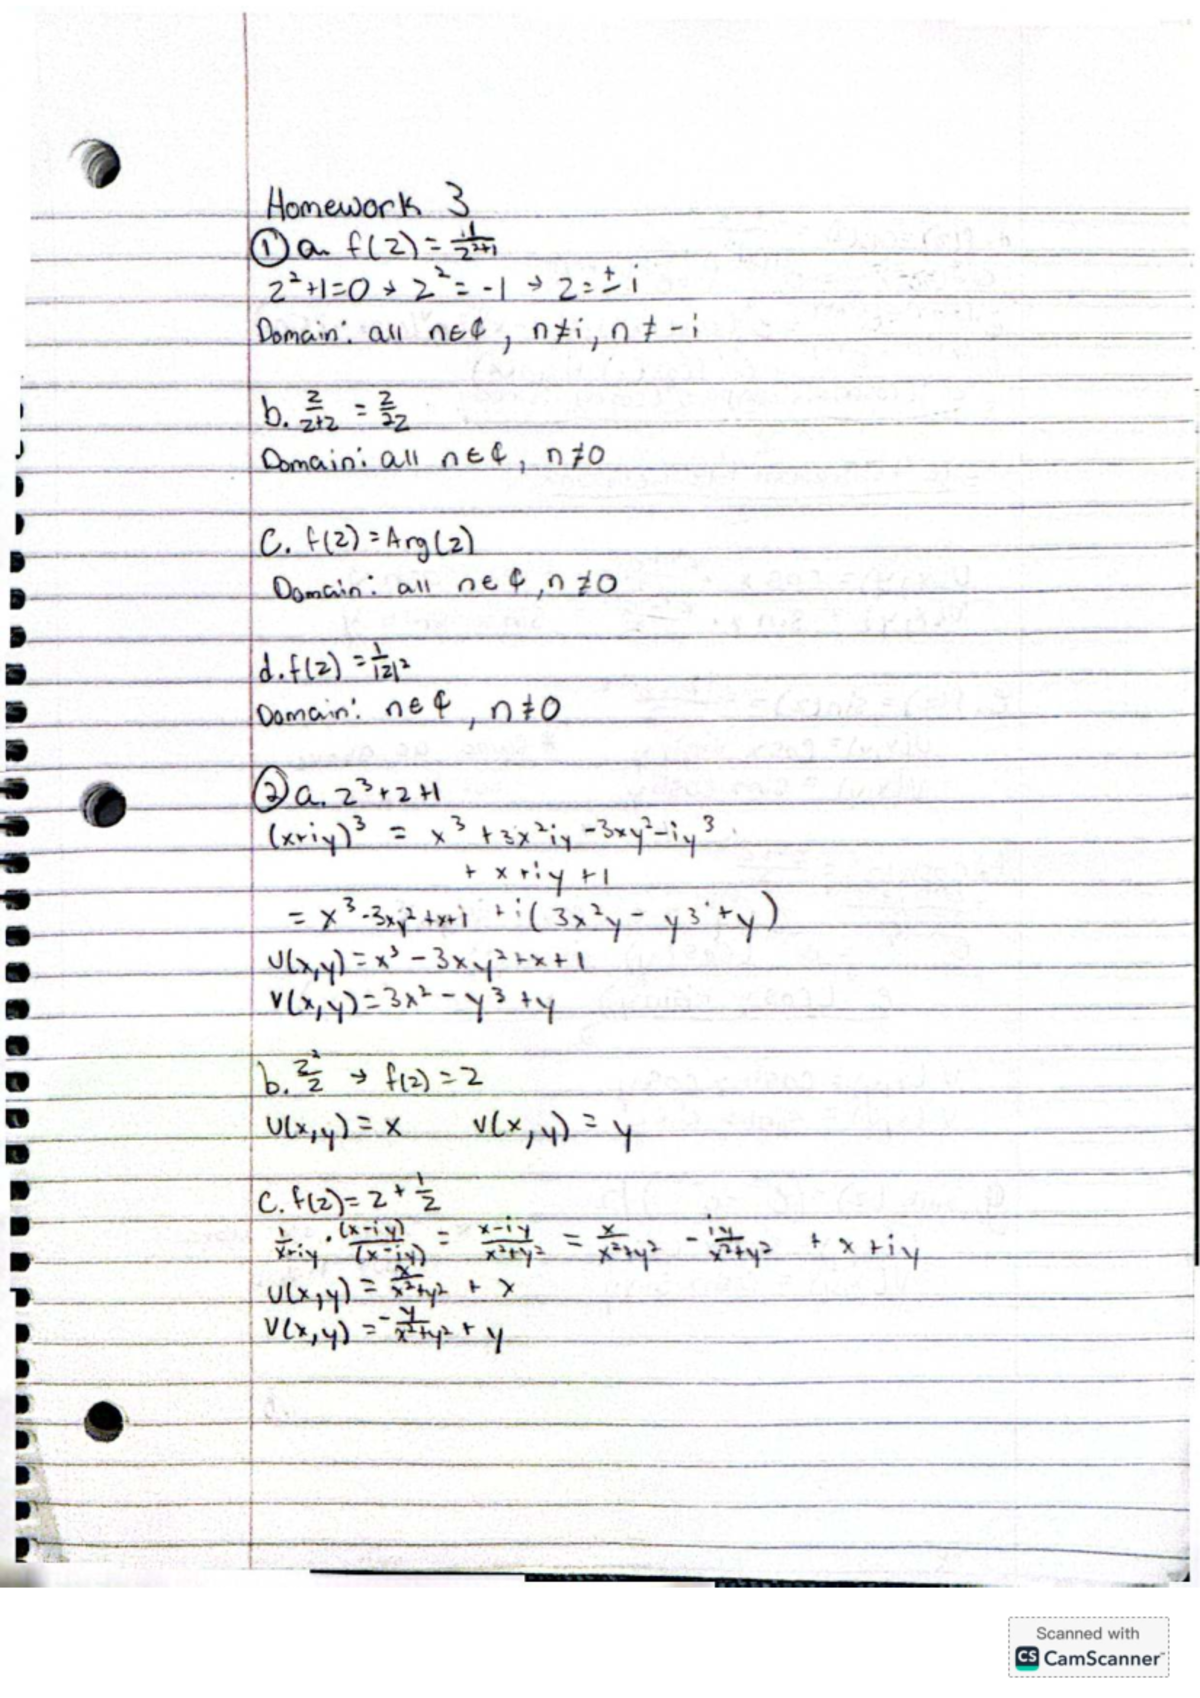 Homework 3
① a. f(z) = 1/(z²+1)
z²+1=0 → z² = -1 → z = ± i
Domain: all n∈₵, n≠i, n ≠ -i
b. z/(z+z) = z/2z
Domain: all n∈₵, n≠0
c. f(z) = Arg(z)
Domain: all n∈₵, n≠0
d. f(z) = 1/|z|²
Domain: n∈₵, n≠0
② a. z³+z+1
(x+iy)³ = x³ + 3x²iy - 3xy² - iy³
+ x + iy + 1
= x³ - 3xy² + x+1 + i(3x²y - y³ + y)
U(x,y) = x³ - 3xy² + x + 1
V(x,y) = 3x² - y³ + y
b. z²/z → f(z) = z
U(x,y) = x V(x,y) = y
c. f(z) = z + 1/z
1/(x+iy) · (x-iy)/(x-iy) = (x-iy)/(x²+y²) = x/(x²+y²) - iy/(x²+y²) + x + iy
U(x,y) = x/(x²+y²) + x
V(x,y) = -y/(x²+y²) + y
Scanned with
CS CamScanner